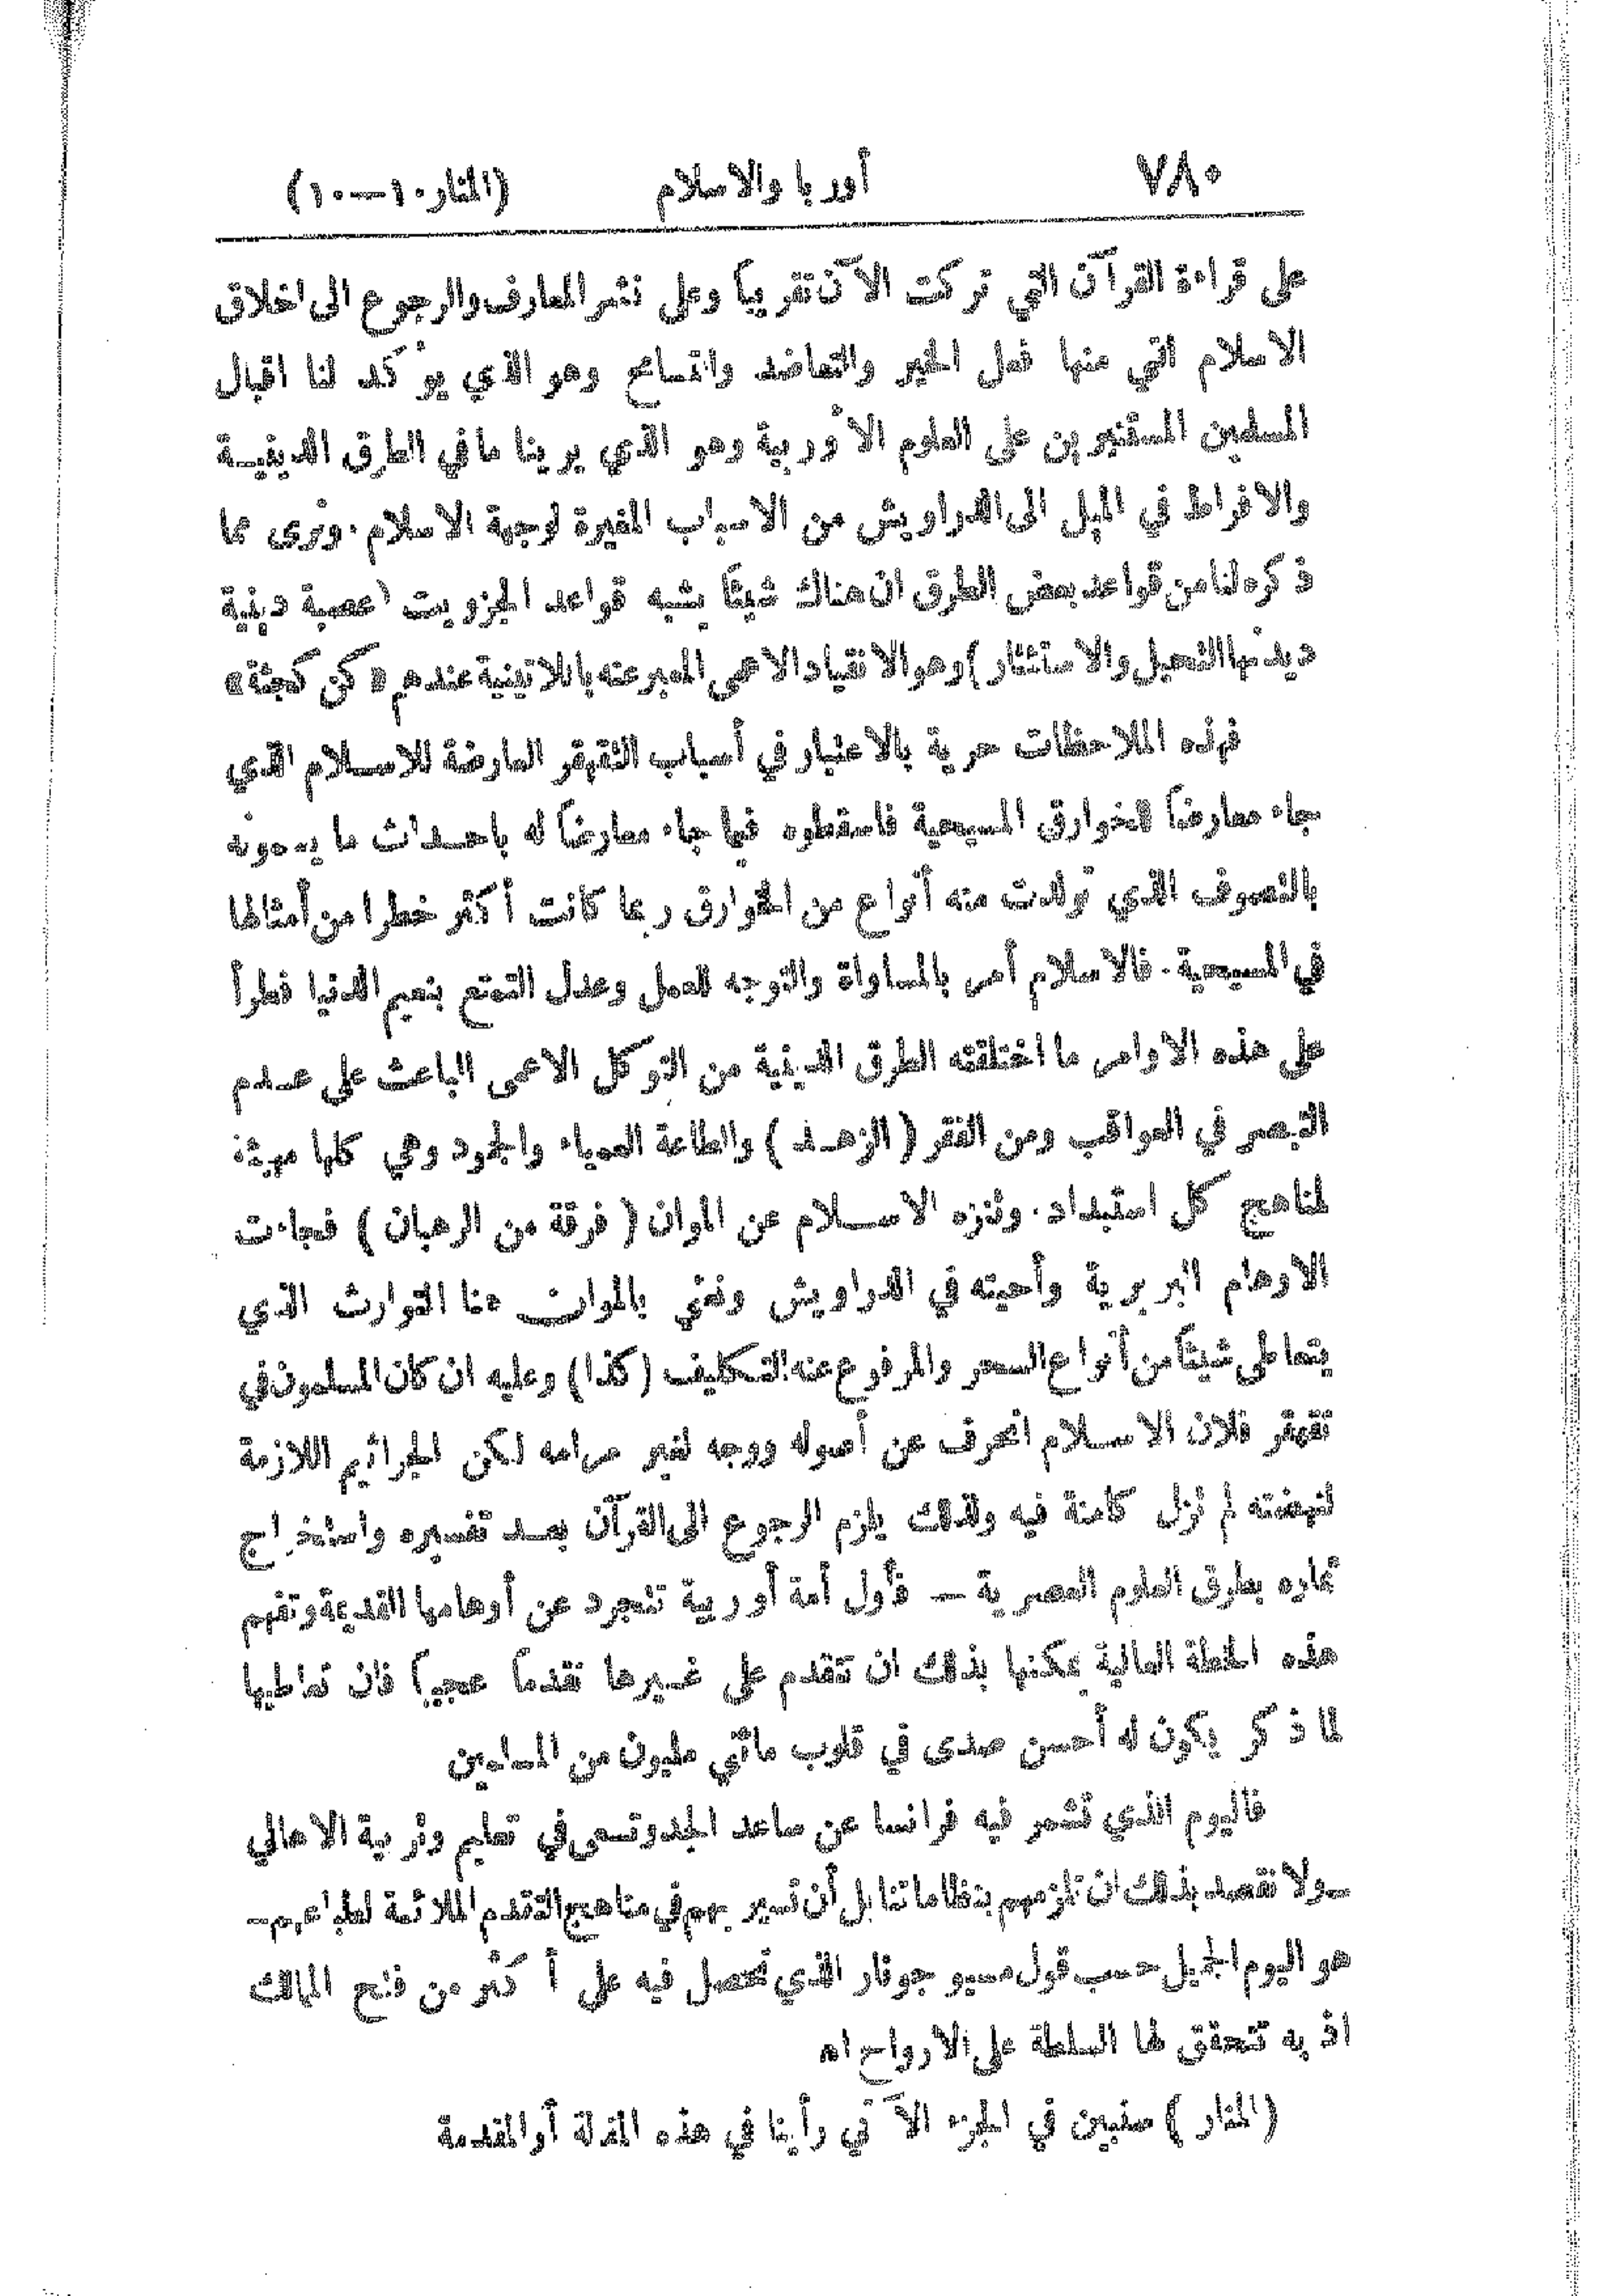 ٧٨٠ أوربا والاسلام (المنار ١٠-١٠)
على قراءة القرآن التي تركت الآن تقريباً وعلى نشر المعارف والرجوع الى اخلاق
الاسلام التي منها فعل الخير والتعاضد والتسامح وهو الذي يؤكد لنا اقبال
المسلمين المستنيرين على العلوم الأوربية وهو الذي يرينا ما في الطرق الدينية
والافراط في الميل الى الدراويش من الاسباب المغيرة لوجهة الاسلام. ونرى مما
ذكره لنا من قواعد بعض الطرق ان هناك شيئاً يشبه قواعد الجزويت (عصبة دينية
ديدنها التحيل والاستئثار) وهو الانقياد الاعمى المعبر عنه باللاتينية عندهم «كن كجثة»
فهذه الملاحظات حرية بالاعتبار في أسباب التقهقر العارضة للاسلام الذي
جاء معارضاً للخوارق المسيحية فاسقطوه فيما جاء معارضاً له باحداث ما يدعونه
بالتصوف الذي تولدت منه أنواع من الخوارق ربما كانت أكثر خطرا من أمثالها
في المسيحية. فالاسلام أمر بالمساواة والتوجه للعمل وعدل التمتع بنعيم الدنيا فطرأ
على هذه الاوامر ما اختلقته الطرق الدينية من التوكل الاعمى الباعث على عدم
التبصر في العواقب ومن الفقر (الزهد) والطاعة العمياء والجمود وهي كلها مهيئة
لمناهج كل استبداد. وتنزه الاسلام عن الموان (فرقة من الرهبان) فجاءت
الاوهام البربرية وأحيته في الدراويش ونعني بالموان هنا التوارث الذي
يتعاطى شيئاً من أنواع السحر والمرفوع عنه التكليف (كذا) وعليه ان كان المسلمون في
تقهقر فلان الاسلام انحرف عن أصوله ووجه لغير مرامه لكن الجراثيم اللازمة
لنهضته لم تزل كامنة فيه ولذلك يلزم الرجوع الى القرآن بعد تفسيره واستخراج
ثماره بطرق العلوم العصرية - فأول أمة أوربية تتجرد عن أوهامها القديمة وتفهم
هذه الخطة العالية يمكنها بذلك ان تتقدم على غيرها تقدماً عجيباً فان تعاطيها
لما ذكر يكون له أحسن صدى في قلوب مائتي مليون من المسلمين
فاليوم الذي تشمر فيه فرانسا عن ساعد الجد وتسعى في تعليم وتربية الاهالي
- ولا نقصد بذلك ان تلزمهم بنظاماتنا بل أن تسير بهم في مناهج التقدم الملائمة لطباعهم -
هو اليوم الجميل حسب قول مسيو جونار الذي تحصل فيه على أكثر من فتح الممالك
اذ به تتحقق لها السلطة على الارواح اه
(المنار) سنبين في الجزء الآتي رأينا في هذه المقالة أو المقدمة